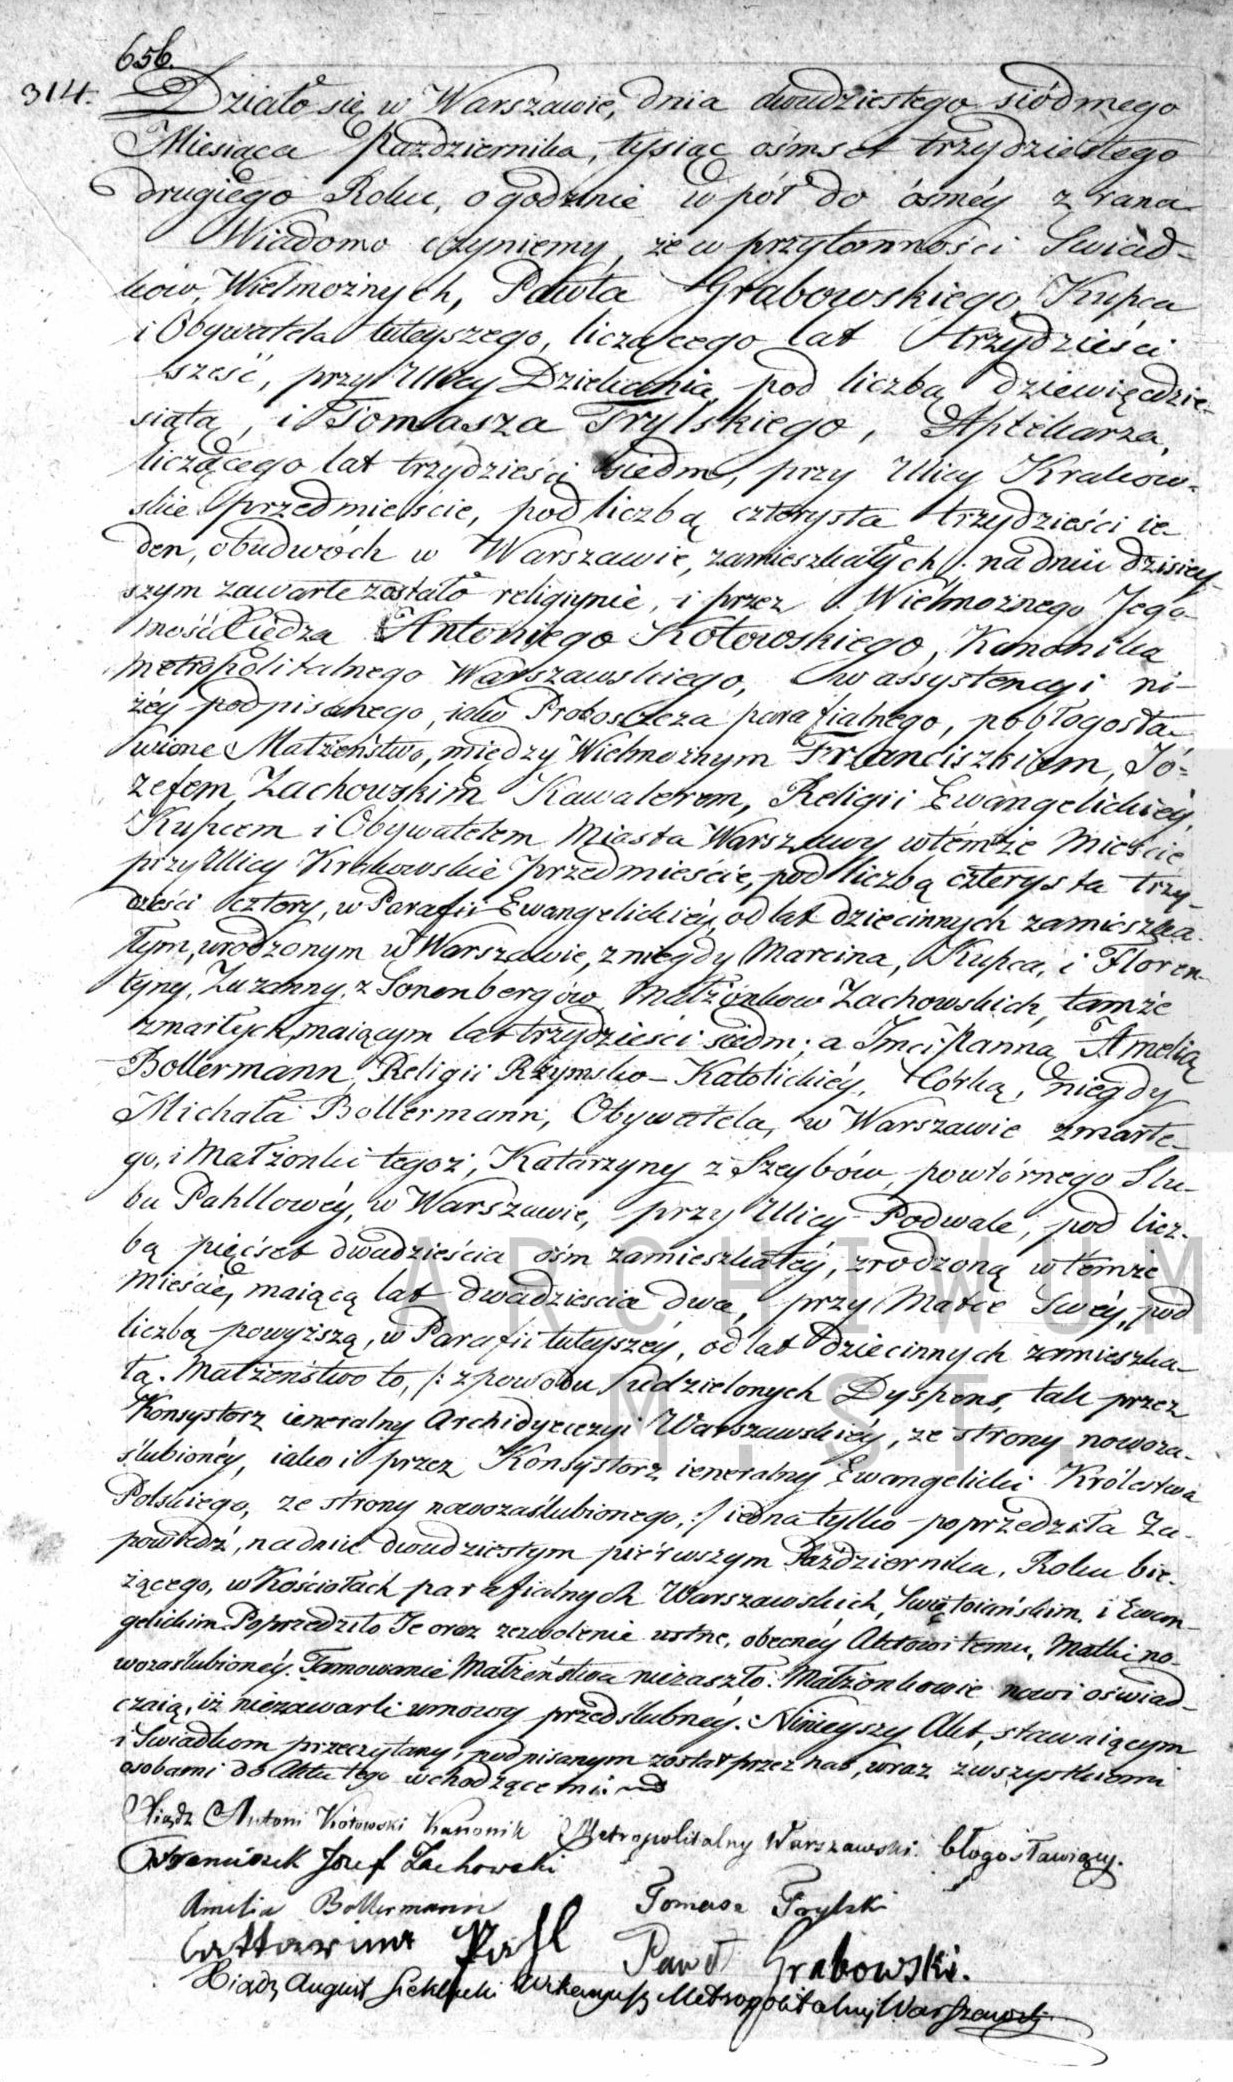 656.
314.
Działo się w Warszawie, dnia dwudziestego siódmego
Miesiąca Października, tysiąc ośmset trzydziestego
drugiego Roku, o godzinie w pół do ósméy z rana
Wiadomo czyniemy, że w przytomności Swiad-
ków, Wielmożnych, Pawła Grabowskiego, Kupca
i Obywatela tuteyszego, liczącego lat trzydzieści
sześć, przy Ulicy Dziekania, pod liczbą dziewięćdzie-
siątą, i Tomasza Frylskiego, Aptekarza,
liczącego lat trzydzieści siedm, przy Ulicy Krakow-
skie Przedmieście, pod liczbą czterysta trzydzieści ie-
den, obudwóch w Warszawie, zamieszkałych /. na dniu dzisiey-
szym zawarte zostało religiynie, i przez Wielmożnego Jego-
mość Xiędza Antoniego Kotowskiego, Kanonika
Metropolitalnego Warszawskiego, w assystencyi ni-
żéy podpisanego, iako Proboszcza parafialnego, pobłogosła-
wione Małżeństwo, między Wielmożnym Franciszkiem, Jó-
zefem Zachowskim Kawalerem, Religii Ewangelickiéy,
Kupcem i Obywatelem Miasta Warszawy w témże Mieście
przy Ulicy Krakowskie Przedmieście, pod liczbą czterysta trzy-
dzieści cztery, w Parafii Ewangelickiéy, od lat dziecinnych zamieszka-
łym, urodzonym w Warszawie, z niegdy Marcina, Kupca, i Floren-
tyny, Zuzanny, z Sonenbergów Małżonków Zachowskich, tamże
zmarłych, maiącym lat trzydzieści siedm; a Jmci Panną Amelią
Bollermann, Religii Rzymsko-Katolickiéy, Córką, niegdy
Michała Bollermann, Obywatela, w Warszawie zmarłe-
go, i Małżonki tegoż, Katarzyny z Szeybów, powtórnego Slu-
bu Pahllowéy, w Warszawie, przy Ulicy Podwale, pod licz-
bą pięćset dwadzieścia ośm zamieszkałéy, zrodzoną w témże
mieście, maiącą lat dwadzieścia dwa, przy Matce Swéy, pod
liczbą powyższą, w Parafii tuteyszéy, od lat dziecinnych zamieszka-
łą. Małżeństwo to, /: z powodu udzielonych Dyspens, tak przez
Konsystorz ieneralny Archidyecezyi Warszawskiéy, ze strony nowoza-
ślubionéy, iako i przez Konsystorz ieneralny Ewangelicki Królestwa
Polskiego, ze strony nowozaślubionego, :/ iedna tylko poprzedziła Za-
powiedź, na dniu dwudziestym piérwszym Października, Roku bie-
żącego, w Kościołach parafialnych Warszawskich, Swiętoiańskim i Ewan-
gelickim. Poprzedziło Je oraz zezwolenie ustne, obecnéy Aktowi temu, Matki no-
wozaślubionéy. Tamowanie Małżeństwa niezaszło. Małżonkowie nowi oświad-
czaią, iż niezawarli umowy przedślubnéy. Ninieyszy Akt, stawaiącym
i Swiadkom przeczytany, podpisanym został przez nas, wraz z wszystkiemi
osobami do Aktu tego wchodzącemi.
Xiądz Antoni Kotowski Kanonik Metropolitalny Warszawski błogosławiący.
Franciszek Josef Zachowski
Amelia Bollermann Tomasz Frylski
Cattarina Pahl Paweł Grabowski.
Xiądz August Wikaryusz Metropolitalny Warszawski
ARCHIWUM
M. ST.